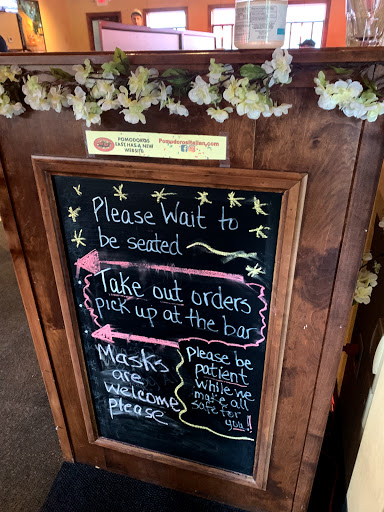 POMODOROS
EAST HAS A NEW
WEBSITE
PomodorosItalian.com
Please Wait to
be seated
Take out orders
pick up at the bar
Masks
are
welcome
please
Please be
patient
While we
make all
safe for
you!